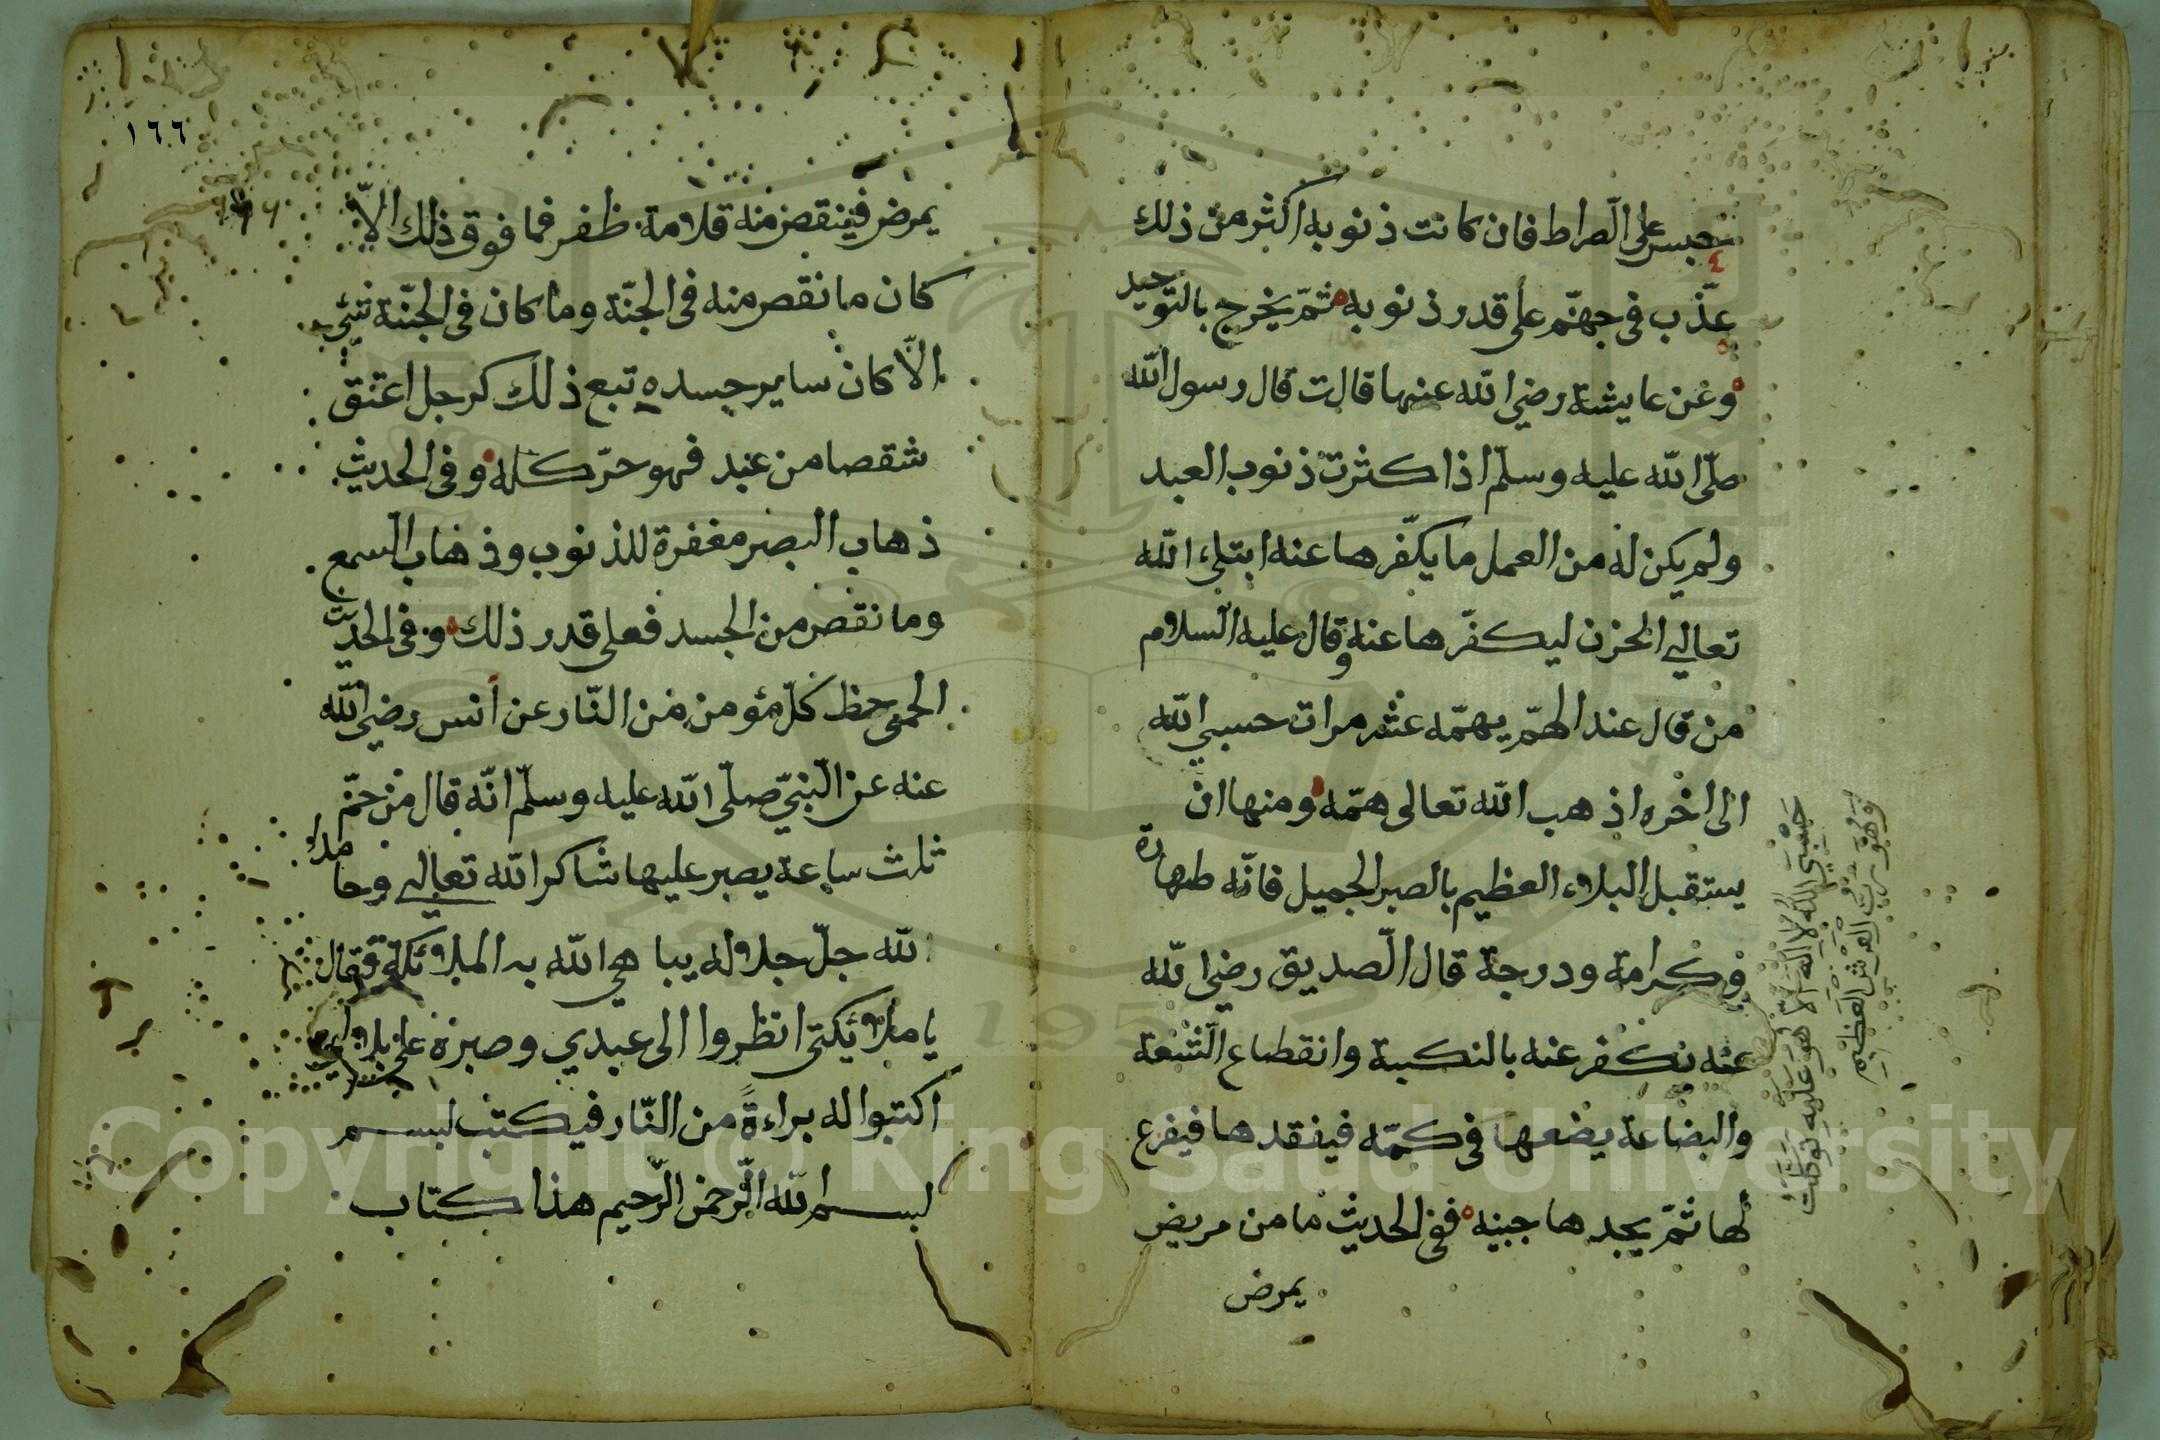 حبس على الصراط فان كانت ذنوبه اكثر من ذلك
عذّب فى جهنّم على قدر ذنوبه ثمّ يخرج بالتوحيد
وعن عايشة رضي الله عنها قالت قال رسول الله
صلّى الله عليه وسلّم اذا كثرت ذنوب العبد
ولم يكن له من العمل ما يكفّرها عنه ابتلاه الله
تعالى الحزن ليكفّرها عنه وقال عليه السلام
من قال عند الهمّ يهمّه عشر مرات حسبي الله
الى اخره اذهب الله تعالى همّه ومنها ان
يستقبل البلاء العظيم بالصبر الجميل فانّه طهارة
وكرامة ودرجة قال الصّديق رضي الله
عنه يكفر عنه بالنكبة وانقطاع الشّسعة
والبضاعة يضعها فى كمّه فيفقدها فيفزع
لها ثمّ يجدها جبنه ففى الحديث ما من مريض
يمرض
حَسْبِيَ اللهُ لا اِلهَ اِلّا هُوَ عَلَيْهِ تَوَكَّلْتُ
وَهُوَ رَبُّ الْعَرْشِ الْعَظِيمِ
١٦٦
يمرض فينقص منه قلامة ظفر فما فوق ذلك الّا
كان ما نقص منه فى الجنّة وما كان فى الجنّة شئ
الّا كان ساير جسده تبع ذلك كرجل اعتق
شقصا من عبد فهو حرّ كله وفى الحديث
ذهاب البصر مغفرة للذنوب وذهاب السمع
وما نقص من الجسد فعلى قدر ذلك وفى الحديث
الحمى حظ كلّ مؤمن من النّار عن أنس رضي الله
عنه عن النّبيّ صلّى الله عليه وسلّم انّه قال من حمّ
ثلث ساعة يصبر عليها شاكرا لله تعالى وحامدا
لله جلّ جلاله يباهي الله به الملائكة فقال
يا ملائكتى انظروا الى عبدي وصبره على بلاءي
اكتبوا له براءةً من النّار فيكتب لبسم
بسم الله الرّحمن الرّحيم هذا كتاب
Copyright © King Saud University